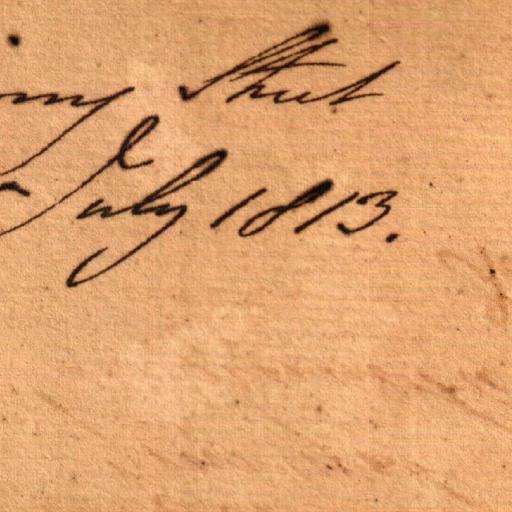 Street
July 1813.